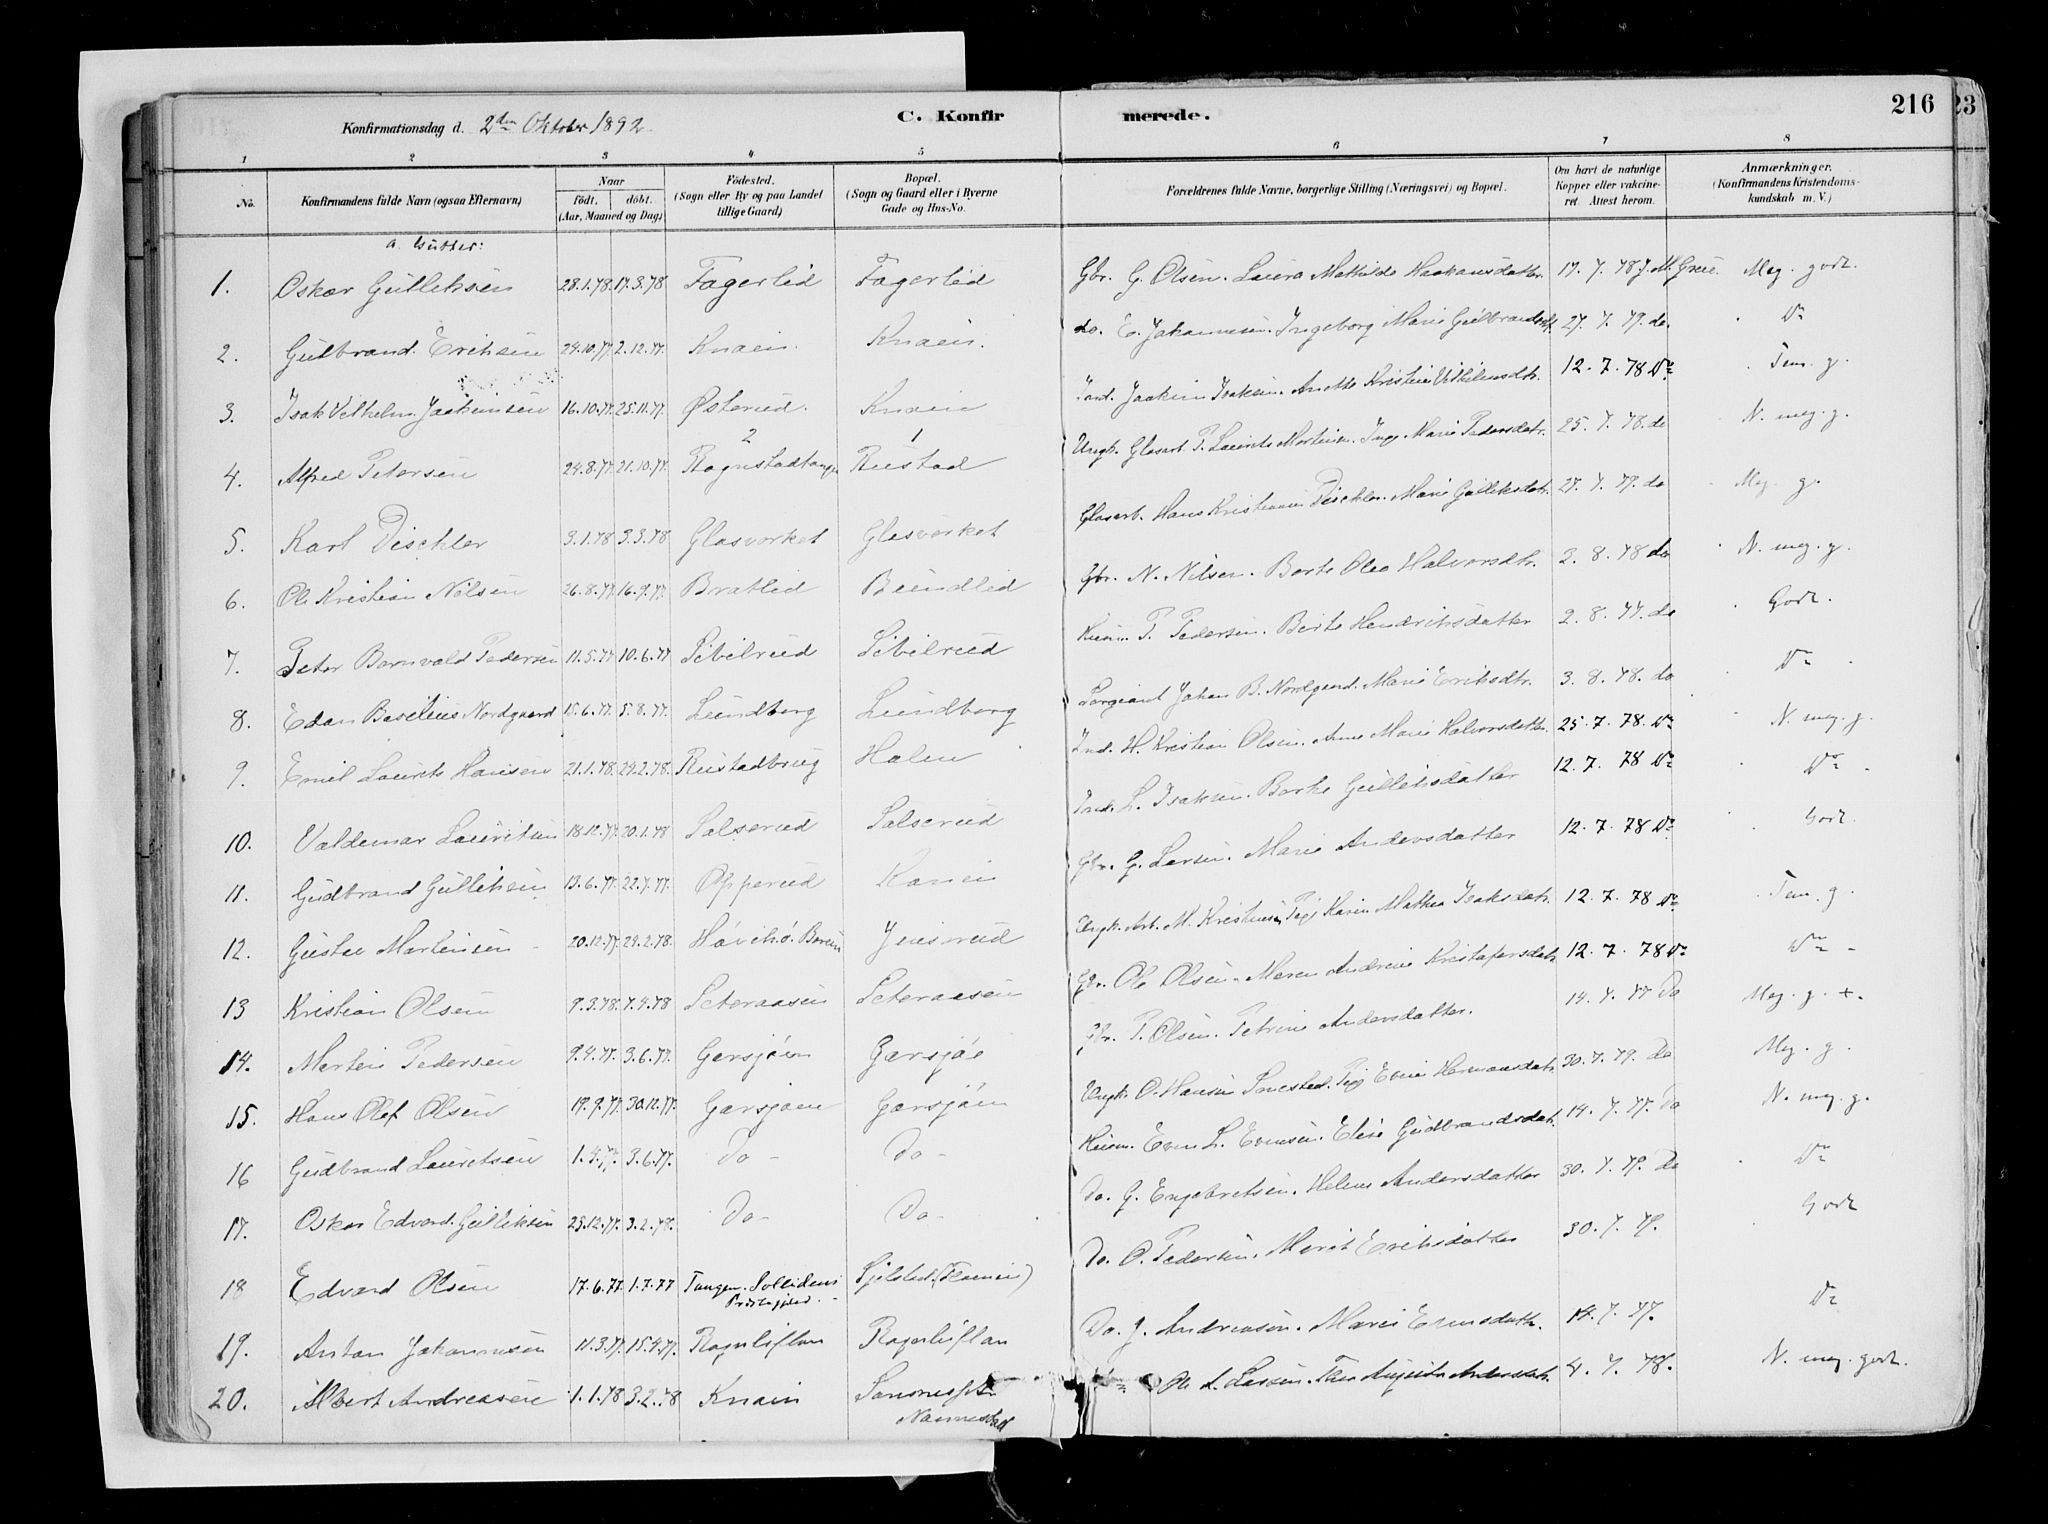 Konfirmationsdag d. 2den Oktober 1892.
C. Konfir
merede.
216
23
1 2 3 4 5 6 7 8
No.
Konfirmandens fulde Navn (ogsaa Efternavn)
Naar
födt. döbt.
(Aar, Maaned og Dag)
Födested.
(Sogn eller By og paa Landet
tillige Gaard)
Bopæl.
(Sogn og Gaard eller i Byerne
Gade og Hus-No.
Forældrenes fulde Navne, borgerlige Stilling (Næringsvei) og Bopæl.
Om havt de naturlige
Kopper eller vakcine-
ret. Attest herom.
Anmærkninger.
(Konfirmandens Kristendoms-
kundskab m. V.)
a. Gutter:
1. Oskar Gulliksen 28.1.78. 17.3.78 Fagerlid Fagerlid Gbr. G. Olsen. Laura Mathilde Haakansdatter 17.7.78 Meg. godt.
2. Gulbrand Eriksen 24.10.77. 2.12.77. Knaein. Knaein. do. E. Johannesen. Ingeborg Marie Gulbrandsdtr 27.7.79. do. Do
3. Isak Vilhelm Joakimsen 16.10.77. 25.11.77. Østerud. Knaein Ind. Joakim Isaksen. Anette Kristine Vilhelmsdtr. 12.7.78 Do Tem. g.
2 1
4. Alfred Petersen 24.8.77. 21.10.77. Rognstadtangen Rustad Ungk. Glasarb. P. Laurits Martinsen. Marie Pedersdatr. 25.7.78. do N. meg. g.
5. Karl Dischler 3.1.78 3.3.78 Glasverket Glasverket Glasarb. Hans Kristian Dischler. Marie Gulliksdatr. 27.7.79. do Meg. g.
6. Ole Kristian Nilsen 26.8.77. 16.9.77. Bratlid Bundlid Gbr. N. Nilsen. Berte Olea Halvorsdtr. 2.8.78 do N. meg. g.
7. Peter Bernvald Pedersen 11.5.77 10.6.77 Sibilrud Sibilrud Husm. P. Pedersen. Berte Hendriksdatter 2.8.77. do Godt.
8. Edan Basilius Nordgaard 15.6.77. 5.8.77. Lundborg Lundborg Sergeant Johan B. Nordgaard. Marie Eriksdtr. 3.8.78. do Do
9. Emil Laurits Hansen 21.1.78. 24.2.78. Rustadbrug Holen Ind. H. Kristian Olsen. Anne Marie Halvorsdatter. 25.7.78. Do N. meg. g.
10. Valdemar Lauritsen 18.12.77. 20.1.78 Salserud Salserud Ind. L. Isaksen. Berte Gulliksdatter 12.7.78 Do Do
11. Gudbrand Gulliksen 13.6.77. 22.7.77. Opperud Gbr. G. Larsen. Marie Andersdatter 12.7.78 Do Godt.
12. Gustav Martinsen 20.12.77. 24.2.78. Ungk. Arb. M. Kristiansen, Pige Karen Mathea Isaksdatr. 12.7.78 Do Tem. g.
13 Kristian Olsen 9.3.78. 7.4.78 Seteraasen Seteraasen Gbr. Ole Olsen. Maren Andrine Kristofersdatr 12.7.78 Do Do
14. Martin Pedersen 9.4.77. 3.6.77. Garsjøen Garsjøe Gbr. P. Olsen. Petrine Andersdatter. 14.7.77 Do Meg. g. +.
15. Hans Olef Olsen 19.9.77. 30.12.77. Garsjøen Garsjøen Ungk. O. Hansen Pige Evine Hermansdatr. 30.7.79. Do Meg. g.
16 Gudbrand Lauritsen 1.4.77. 3.6.77. Do Do Husm. Even L. Evensen. Elise Gudbrandsdatr. 14.7.77. Do N. meg. g.
17. Oskar Edvard Gulliksen 23.12.77. 3.2.78. Do Do Do. G. Engebretsen. Helene Andersdatter 30.7.79. Do Do
18 Edvard Olsen 17.6.77. 1.7.77 Tangen. Sollidens Do. O. Pedersen. Marit Eriksdatter 30.7.79. Godt
Præstegjeld.
19. Anton Johannesen 11.3.77. 15.4.77. Rognliflan Rognliflan Do. J. Andreasen. Marie Evensdatr. 14.7.77. Do
20. Albert Andreasen 1.1.78 3.2.78 Knaein Ole A. Larsen. Andersdatr. 4.7.78. N. meg. godt.
Nannestad